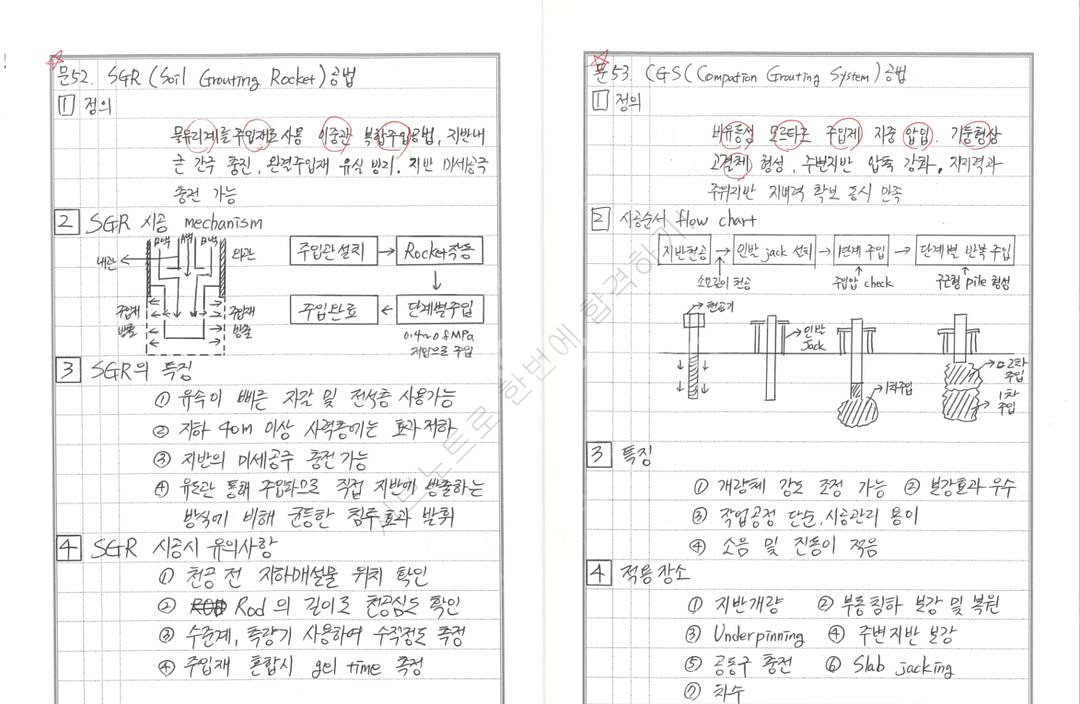 문52. SGR (Soil Grouting Rocket) 공법
1 정의
물유리계를 주입재로 사용 이중관 복합주입공법, 지반내
큰 간극 충진, 완결주입재 유실 방지. 지반 미세공극
충전 가능
2 SGR 시공 mechanism
B액 A액 B액
내관 외관
주입재 방출 주입재 방출
주입관설치 → Rocket작동
주입완료 ← 단계별주입
0.4~0.8MPa
저압으로 주입
3 SGR의 특징
① 유속이 빠른 자갈 및 전석층 사용가능
② 지하 40m 이상 사력층에는 효과저하
③ 지반의 미세공극 충전 가능
④ 유도관 통해 주입되므로 직접 지반에 방출하는
방식에 비해 균등한 침투효과 발휘
4 SGR 시공시 유의사항
① 천공 전 지하매설물 위치 확인
② Rod의 길이로 천공심도 확인
③ 수준계, 측량기 사용하여 수직정도 측정
④ 주입재 혼합시 gel time 측정
문53. CGS (Compation Grouting System) 공법
1 정의
비유동성 모르타르 주입제 지중 압입. 기둥형상
고결체 형성, 주변지반 압축 강화, 지지력과
주위지반 지내력 확보 동시 만족
2 시공순서 flow chart
지반천공 → 인발 jack 설치 → 1단계 주입 → 단계별 반복 주입
소요깊이 천공 주입압 check 구근형 pile 형성
천공기
인발 Jack
1차주입
2차 주입
1차 주입
3 특징
① 개량체 강도 조정 가능 ② 보강효과 우수
③ 작업공정 단순, 시공관리 용이
④ 소음 및 진동이 적음
4 적용장소
① 지반개량 ② 부등침하 보강 및 복원
③ Underpinning ④ 주변지반 보강
⑤ 공동구 충전 ⑥ Slab jacking
⑦ 차수